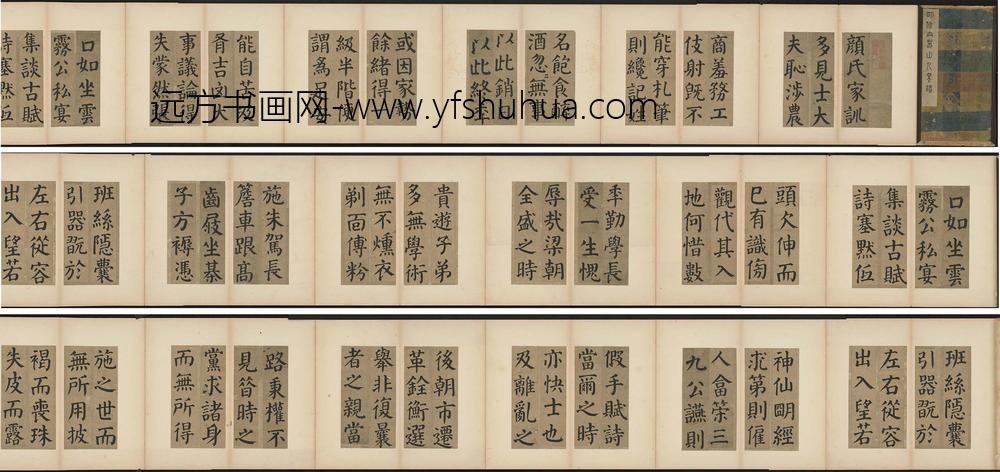 顔氏家訓
多見士大
夫恥涉農
商羞務工
伎射旣不
能穿札筆
則纔記姓
名飽食
酒忽無事
以此銷
以此終年
或因家世
餘緒得
級半階便
謂為
能自苦
胥吉凶大
事議論得
失蒙然
口如坐雲
霧公私宴
集談古賦
詩塞默
远方书画网-www.yfshuhua.com
口如坐雲
霧公私宴
集談古賦
詩塞默低
頭欠伸而
已有識傍
觀代其入
地何惜數
年勤學長
受一生愧
辱哉梁朝
全盛之時
貴遊子弟
多無學術
無不燻衣
剃面傅粉
施朱駕長
簷車跟高
齒屐坐棊
子方褥憑
班絲隱囊
引器翫於
左右從容
出入望若
班絲隱囊
引器翫於
左右從容
出入望若
神仙明經
求第則僱
人畣策三
九公讌則
假手賦詩
當爾之時
亦快士也
及離亂之
後朝市遷
革銓衡選
舉非復曩
者之親當
路秉權不
見昔時之
黨求諸身
而無所得
施之世而
無所用披
褐而喪珠
失皮而露